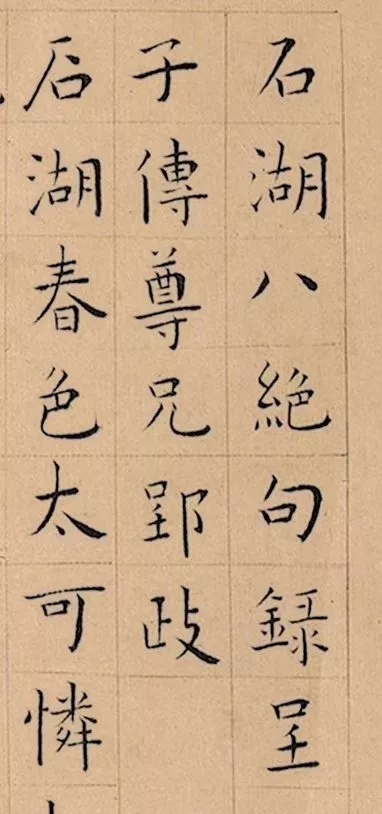 石湖八絶句録呈
子傳尊兄郢政
石湖春色太可憐